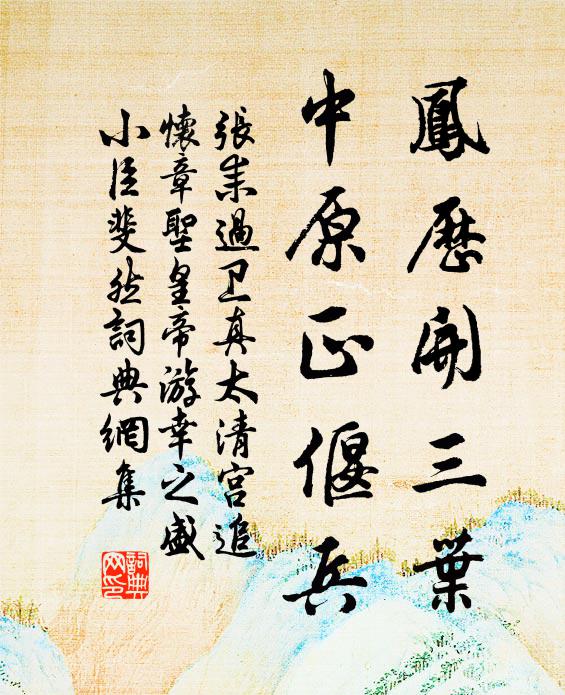 鳳歷開三葉
中原正偃兵
張耒過卫真太清宮追
懷章聖皇帝游幸之盛
小臣斐然詞典網集
詞典网印